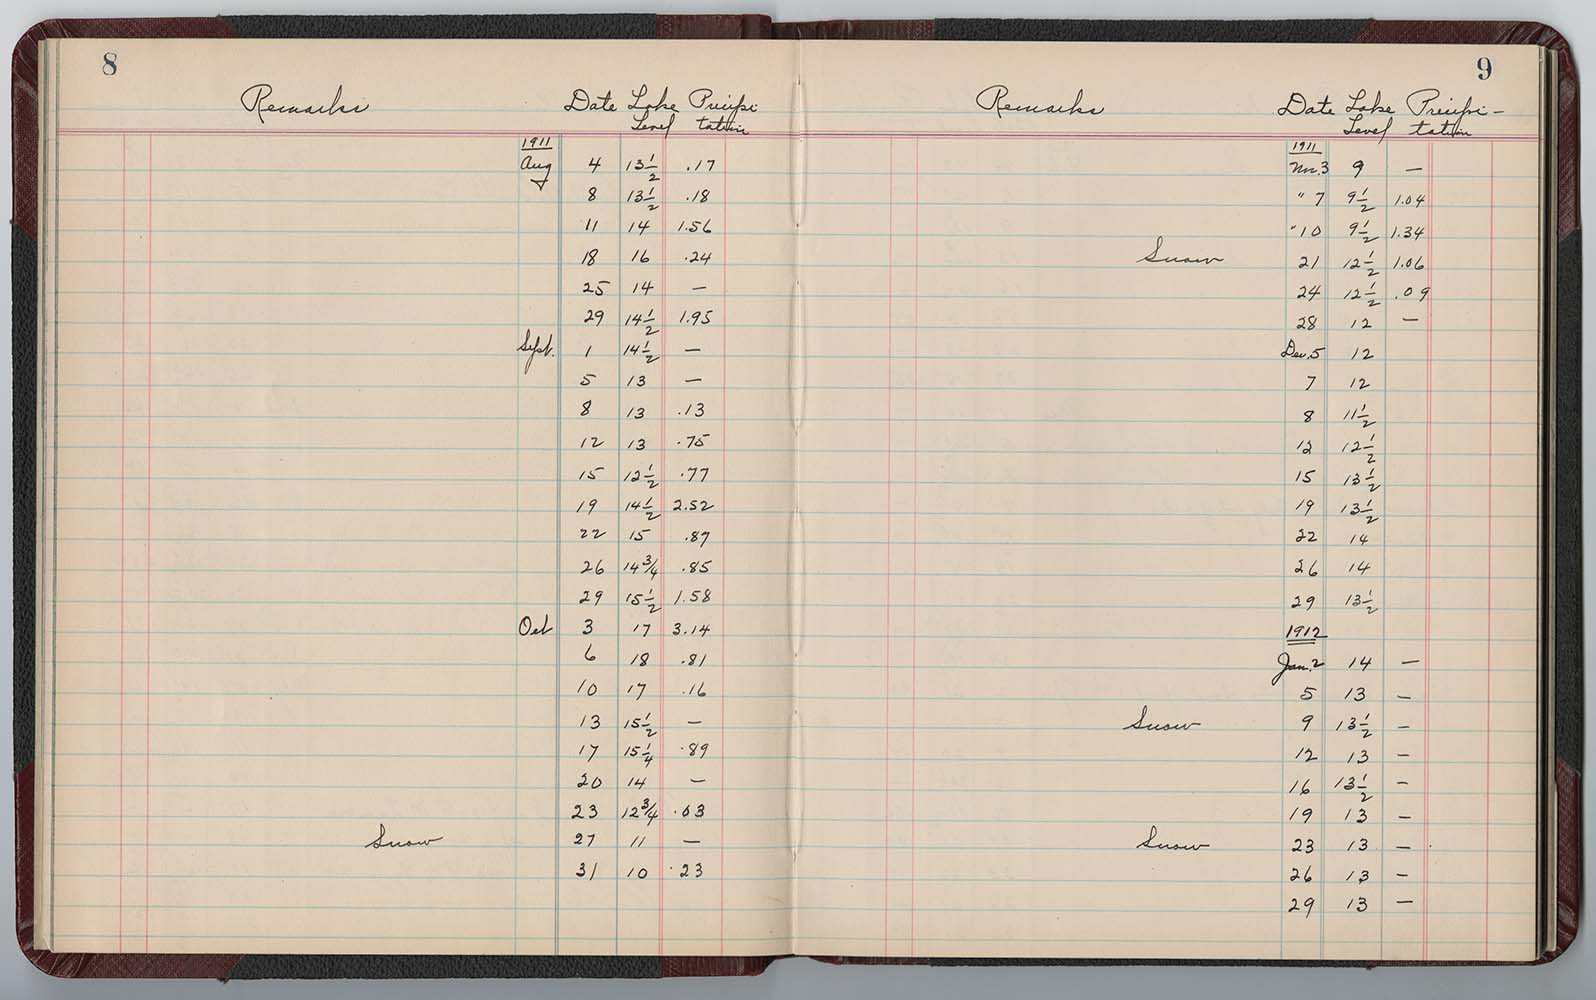 8
Remarks Date Lake Precipi
Level tation
1911
Aug 4 13 1/2 .17
8 13 1/2 .18
11 14 1.56
18 16 .24
25 14 —
29 14 1/2 1.95
Sept. 1 14 1/2 —
5 13 —
8 13 .13
12 13 .75
15 12 1/2 .77
19 14 1/2 2.52
22 15 .87
26 14 3/4 .85
29 15 1/2 1.58
Oct 3 17 3.14
6 18 .81
10 17 .16
13 15 1/2 —
17 15 1/4 .89
20 14 —
23 12 3/4 .03
Snow 27 11 —
31 10 .23
9
Remarks Date Lake Precipi-
Level tation
1911
Nov. 3 9 —
" 7 9 1/2 1.04
" 10 9 1/2 1.34
Snow 21 12 1/2 1.06
24 12 1/2 .09
28 12 —
Dec. 5 12
7 12
8 11 1/2
12 12 1/2
15 13 1/2
19 13 1/2
22 14
26 14
29 13 1/2
1912
Jan. 2 14 —
5 13 —
Snow 9 13 1/2 —
12 13 —
16 13 1/2 —
19 13 —
Snow 23 13 —
26 13 —
29 13 —